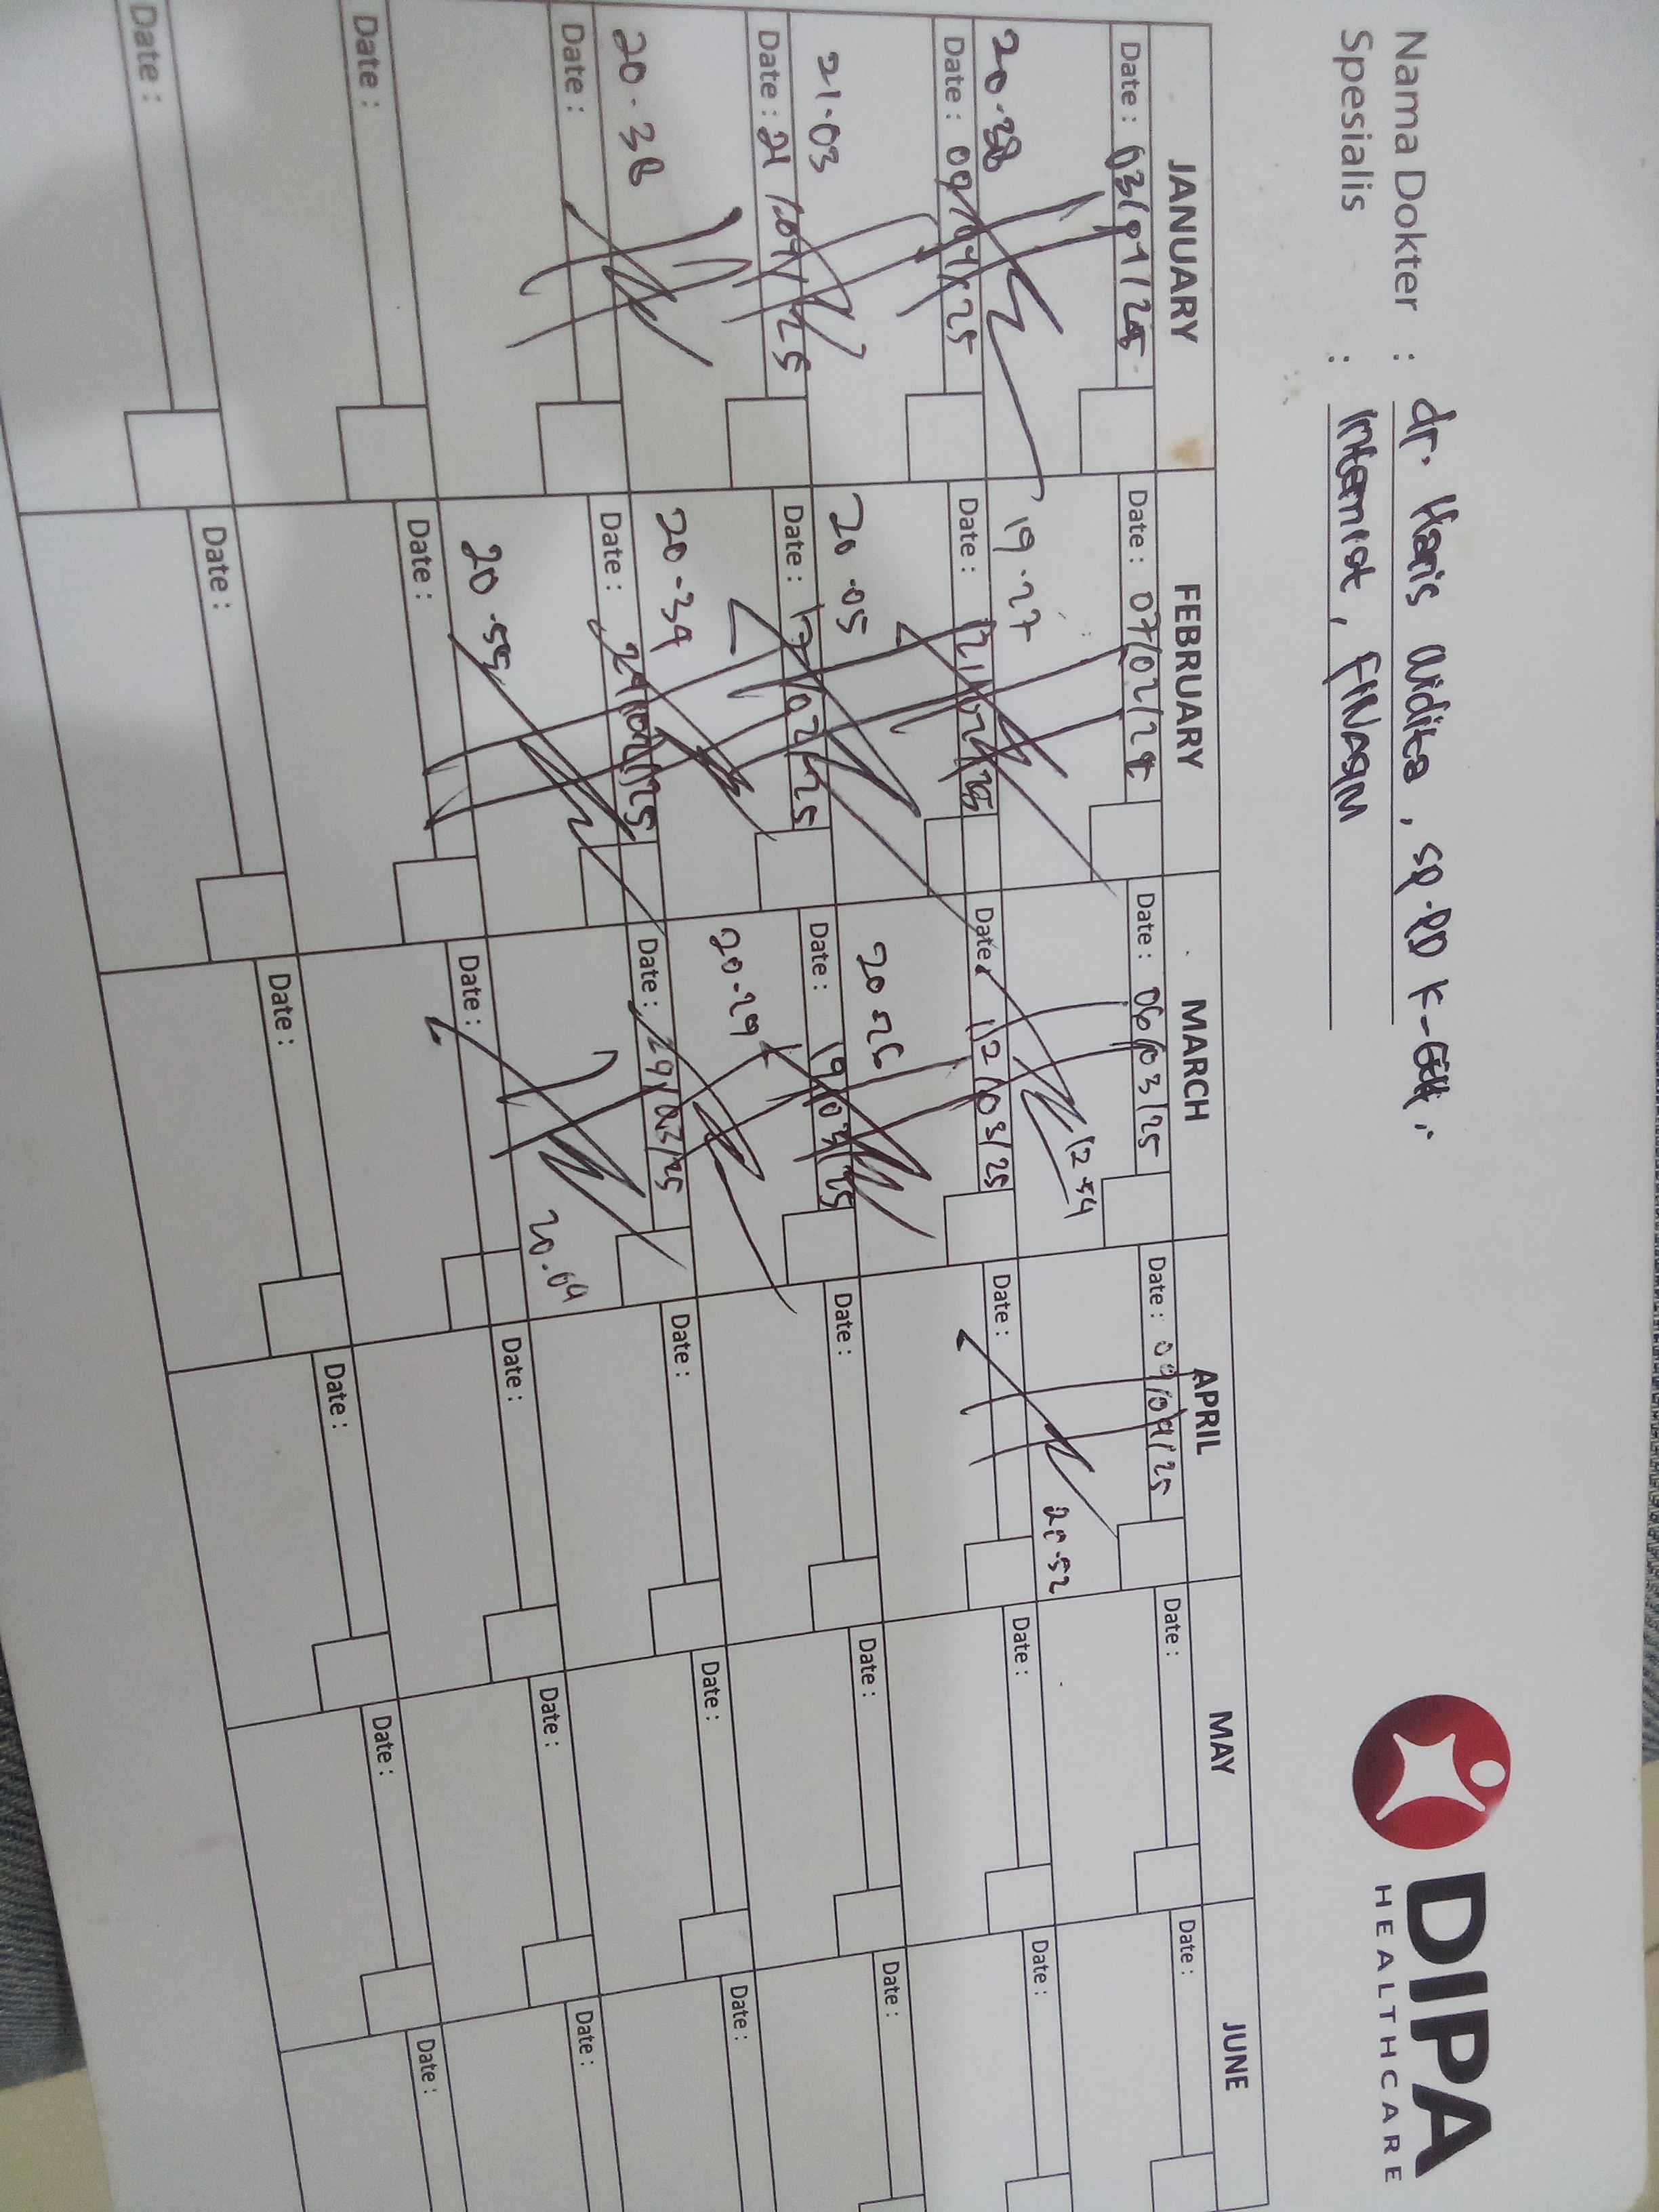 DIPA
HEALTHCARE
Nama Dokter : dr. Haris Widita, sp.PD K-GEH,
Spesialis : Internist, FINASIM
JANUARY FEBRUARY MARCH APRIL MAY JUNE
Date : 03/01/25 Date : 07/02/25 Date : 06/03/25 Date : 09/04/25 Date : Date :
20.38 19.27 12.54 20.52
Date : 09/01/25 Date : 12/02/25 Date : 12/03/25 Date : Date : Date :
21.03 20.05 20.26
Date : 21/01/25 Date : 17/02/25 Date : 19/03/25 Date : Date : Date :
20.38 20.34 20.29
Date : Date : 24/02/25 Date : 29/03/25 Date : Date : Date :
20.55 20.04
Date : Date : Date : Date : Date : Date :
Date : Date : Date : Date : Date : Date :